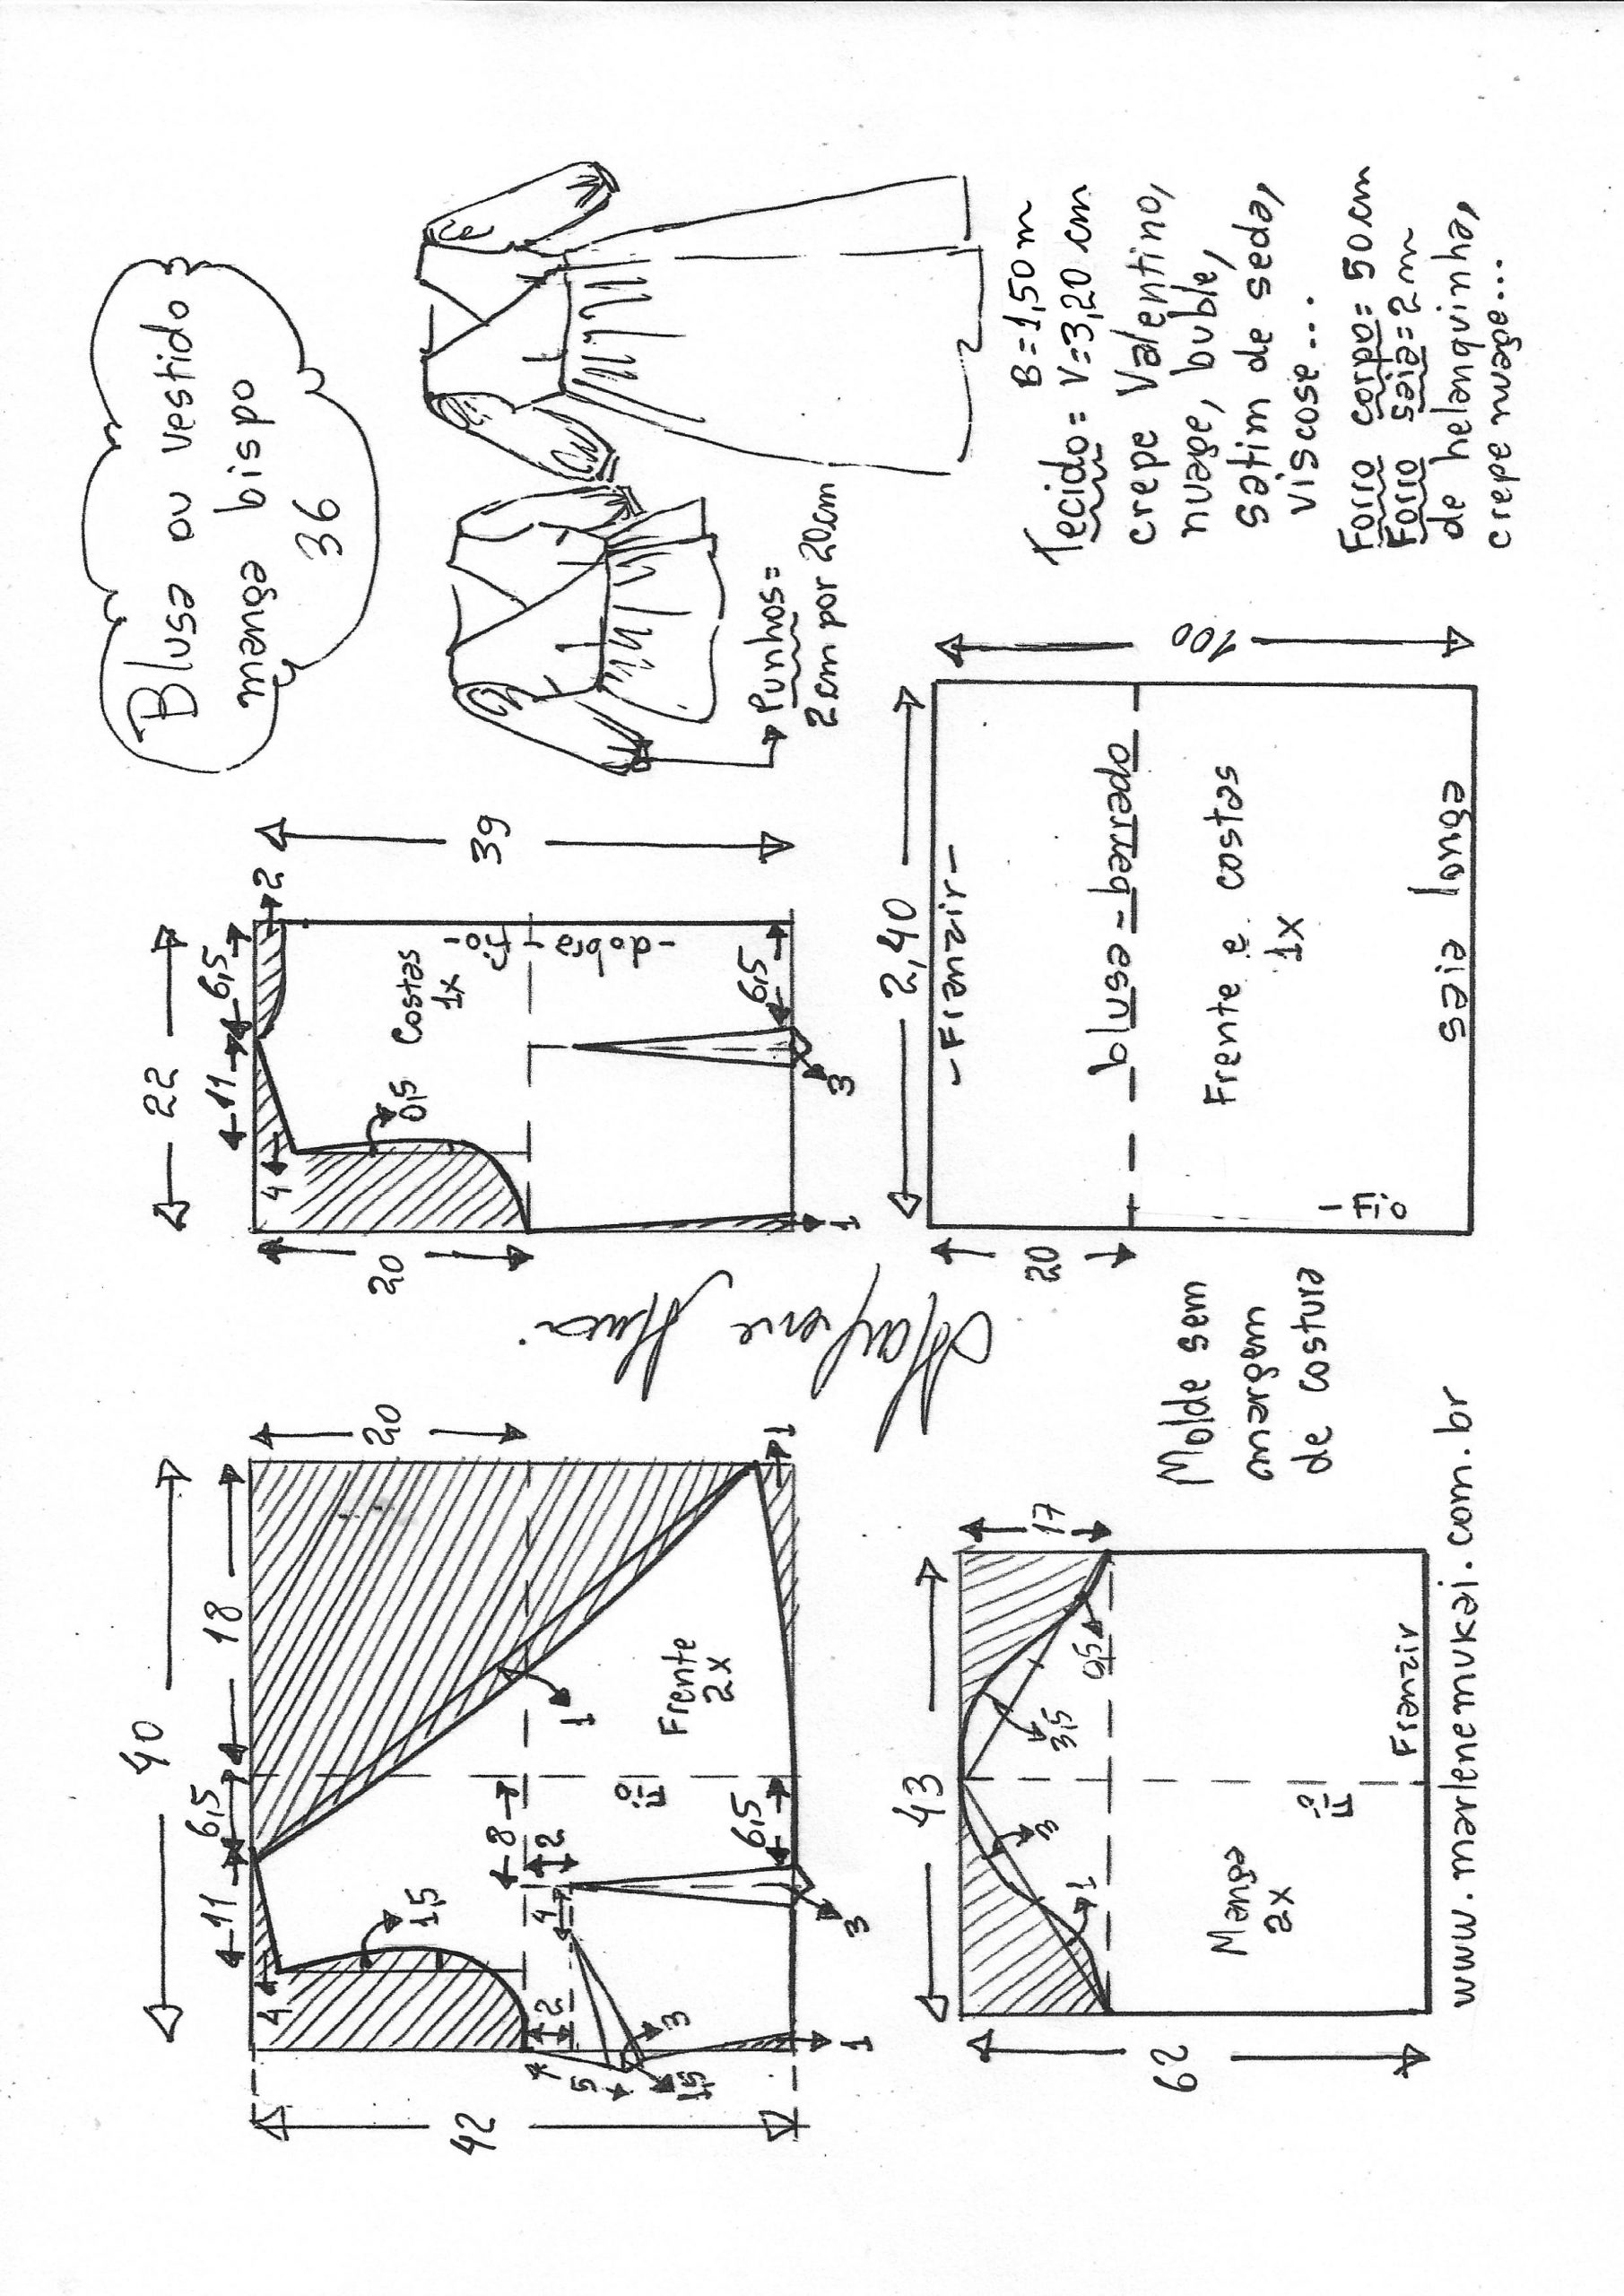 Blusa ou vestido
manga bispo
36
40
11
6,5
18
4
1,5
20
42
8
2
4
2
5
3
1,5
1
6,5
3
1
1
Fio
Frente
2x
22
11
6,5
2
4
0,5
Costas
1x
-fio-
-dobra-
39
20
6,5
3
1
Marlene Mukai
Punhos=
2cm por 20cm
43
17
3
1
3,5
0,5
62
Manga
2x
Fio
Franzir
Molde sem
margem
de costura
www.marlenemukai.com.br
2,40
-Franzir-
20
100
blusa=barrado
Frente e costas
1x
-Fio
saia longa
B=1,50m
Tecido= V=3,20cm
crepe Valentino,
nuage, buble,
satim de seda,
viscose...
Forro corpo=50cm
Forro saia=2m
de helanquinha,
crepe nuage...